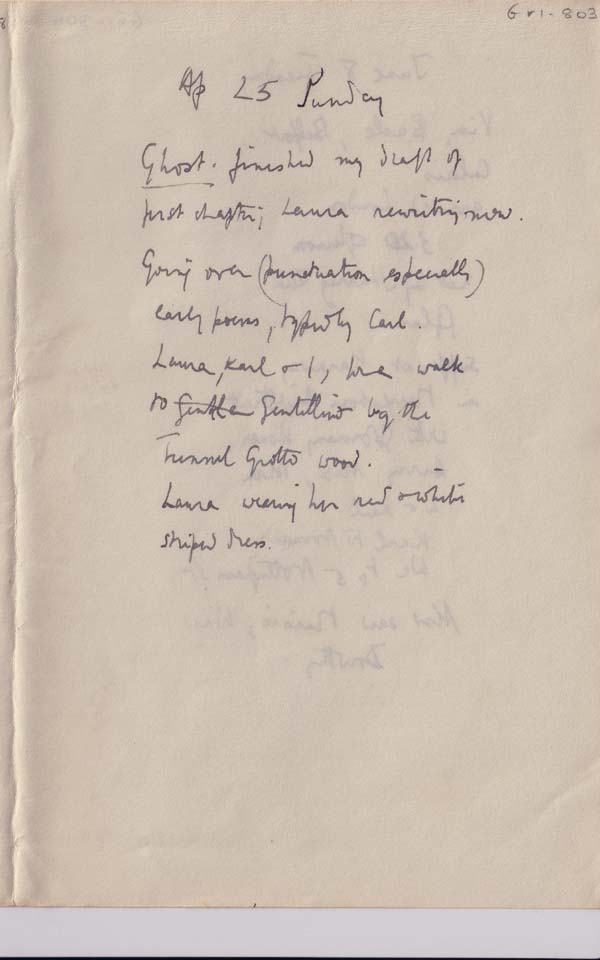 GRI-803
Ap 25 Sunday
Ghost. finished my draft of
first chapter; Laura rewriting now.
Going over (punctuation especially)
early poems, typed by Carl.
Laura, Karl & I, for a walk
to Gentilino by the
Tunnel Grotto wood.
Laura wearing her red & white
striped dress.